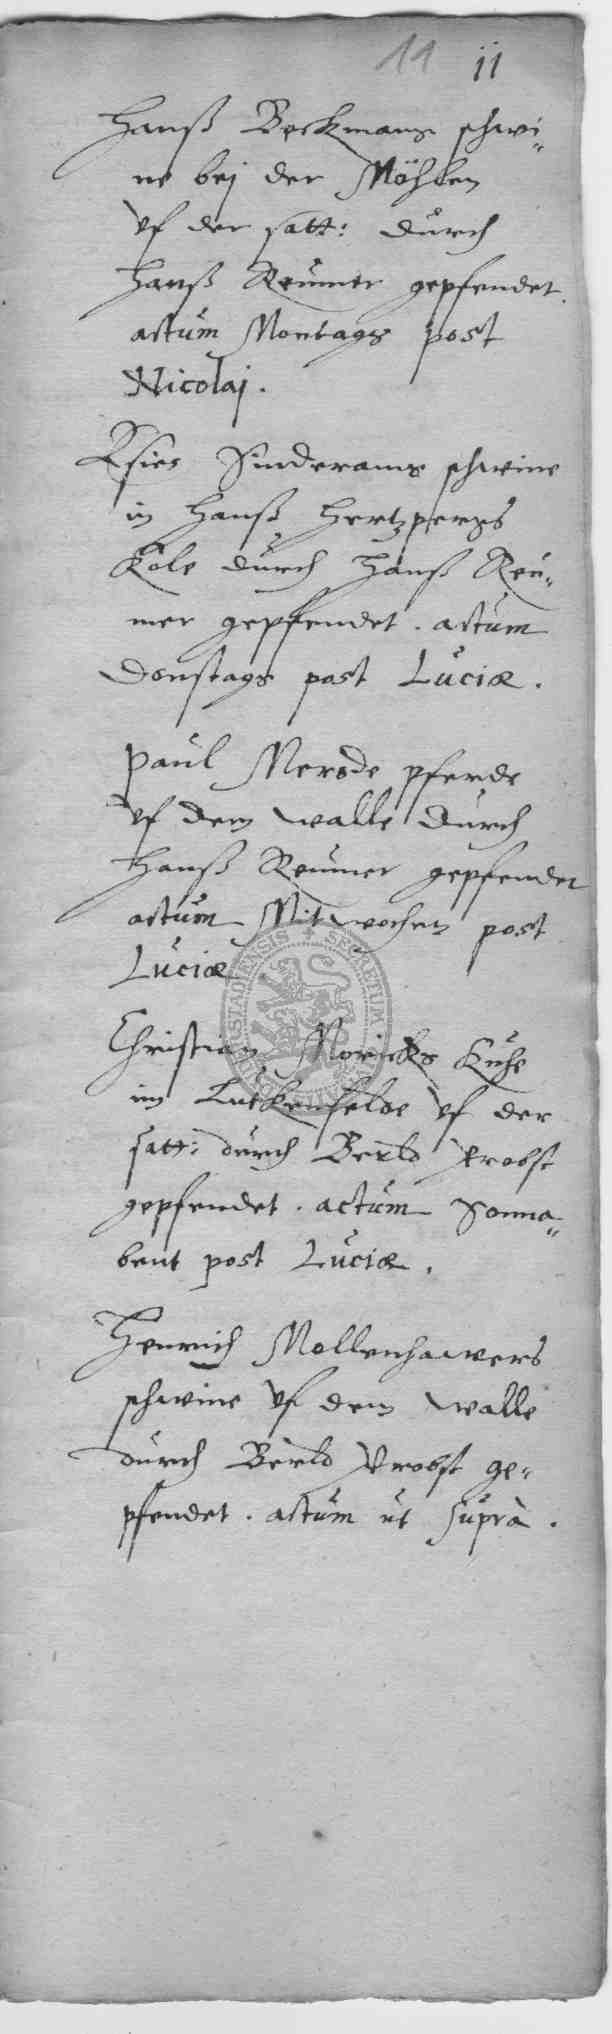 11 ii
Hanß Beckmans schwi-
ne bej der Möhlen
vf der satt: durch
Hanß Reumer gepfendet.
actum Montags post
Nicolaj.
Sinderams schweine
in Hanß Hertzpergs
Kole durch Hanß Reu-
mer gepfendet. actum
Donstags post Luciæ.
Paul Merode pferde
vf dem walle durch
Hanß Reumer gepfendet
actum Mitwochen post
Luciæ
Christian Moricks Kuhe
im Lutkenfelde vf der
satt: durch Bertd Probst
gepfendet. actum Sonna-
bent post Luciæ.
Henrich Mollenhawers
schwine vf dem walle
durch Bertd Probst ge-
pfendet. actum ut suprà.